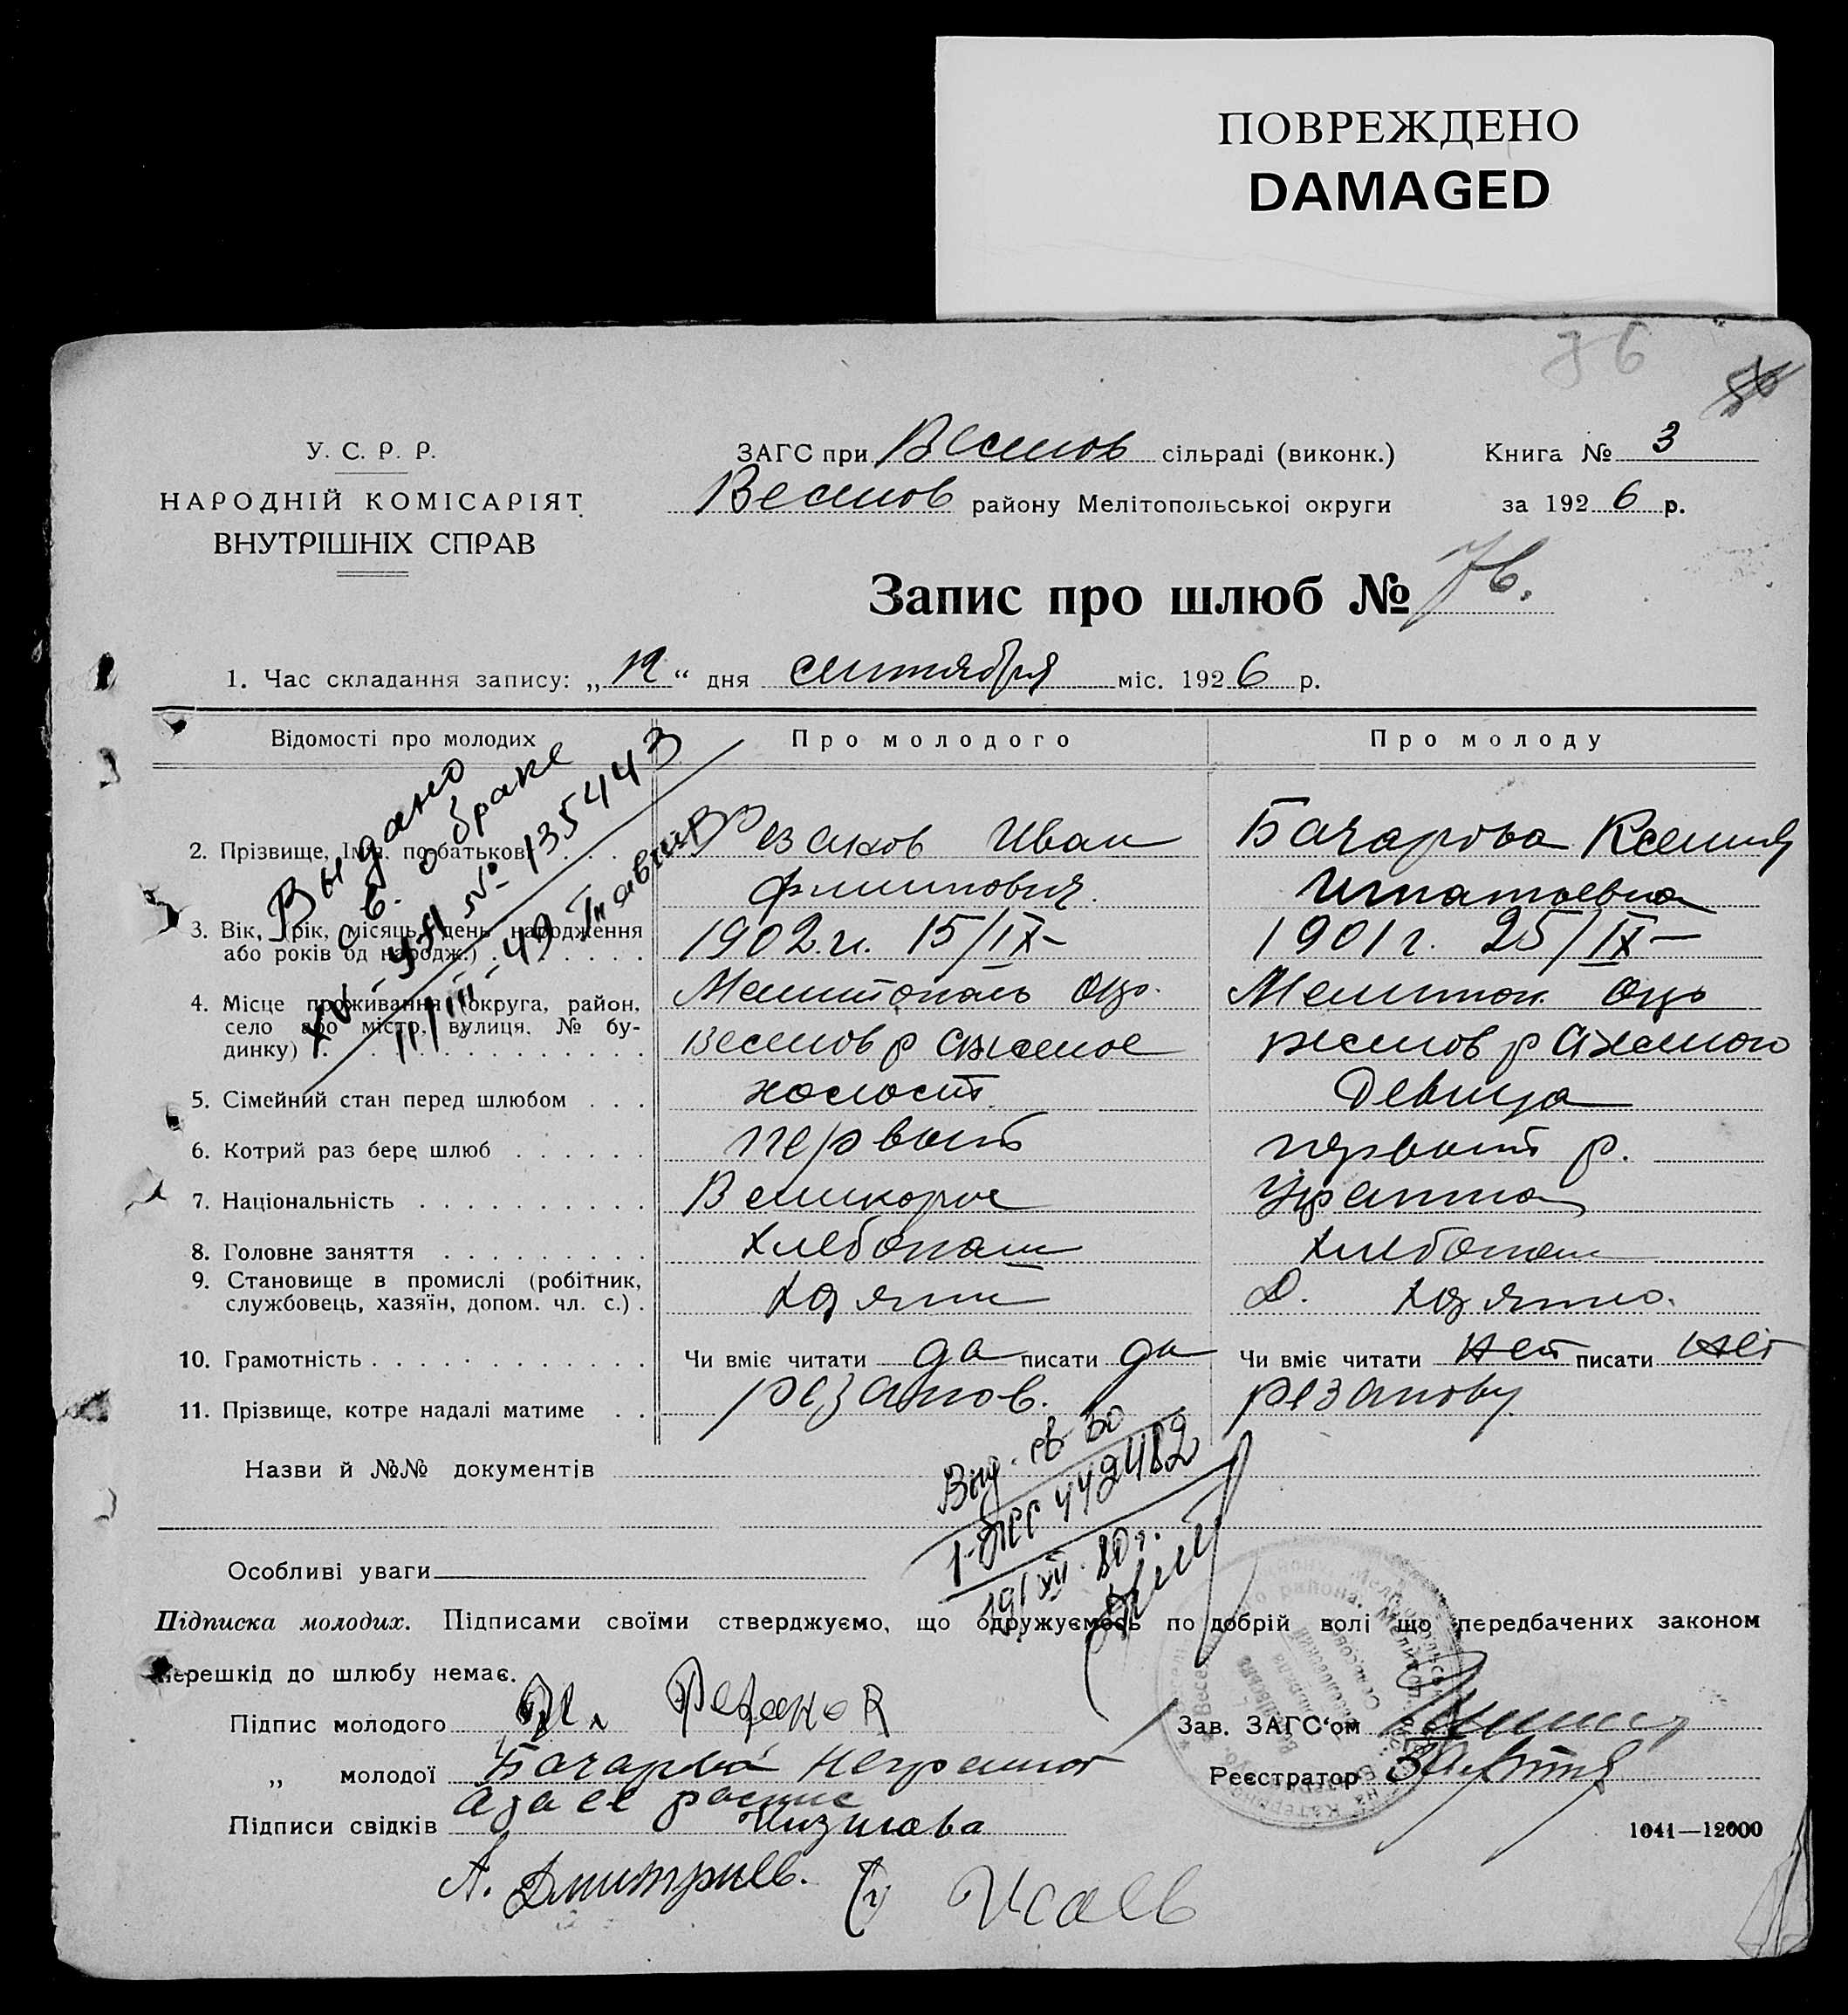 ПОВРЕЖДЕНО
DAMAGED
76
У. С. Р. Р.
НАРОДНІЙ КОМІСАРІЯТ
ВНУТРІШНІХ СПРАВ
ЗАГС при Веселов сільраді (виконк.)
Веселов району Мелітопольської округи
Книга № 3
за 1926 р.
Запис про шлюб № 76.
1. Час складання запису: „ “ дня сентября міс. 1926 р.
Відомості про молодих
Про молодого
Про молоду
Выдано
св. о браке
№ 135443
11/III-49
2. Прізвище, Імя, по-батькові . . .
Резанов Иван
Филипович
Бачарова Ксения
Игнатьевна
3. Вік, (рік, місяць, день народження
або років од народж.) . . . . . . .
1902.г. 15/IX-
1901г. 25/IX-
4. Місце проживання (округа, район,
село або місто, вулиця, № бу-
динку) . . . . . . . . . . . . . .
Мелитополь окр.
Веселов р
Мелитоп. окр
Веселов р
5. Сімейний стан перед шлюбом . . .
холост
Девица
6. Котрий раз бере шлюб . . . . . .
первый
первый р.
7. Національність . . . . . . . . . .
Великорос
Украинка
8. Головне заняття . . . . . . . . .
хлебопаш
хлебопаш
9. Становище в промислі (робітник,
службовець, хазяїн, допом. чл. с.) .
хозяин
Д. хозяина.
10. Грамотність . . . . . . . . . . . .
Чи вміє читати да писати да
Чи вміє читати нет писати нет
11. Прізвище, котре надалі матиме . .
Резанов.
Резанову.
Назви й №№ документів
442482
19/XII.80г.
Особливі уваги
Підписка молодих. Підписами своїми стверджуємо, що одружуємось по добрій волі що передбачених законом
перешкід до шлюбу немає.
Підпис молодого Резанов
„ молодої Бачарова неграмот
а за ее роспис
Підписи свідків
А. Дмитриев.
Исаев
Зав. ЗАГС‘ом
Реєстратор
1041—12000